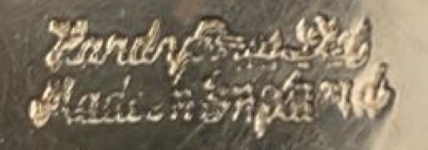 Hardy Bros Ltd
Made in England